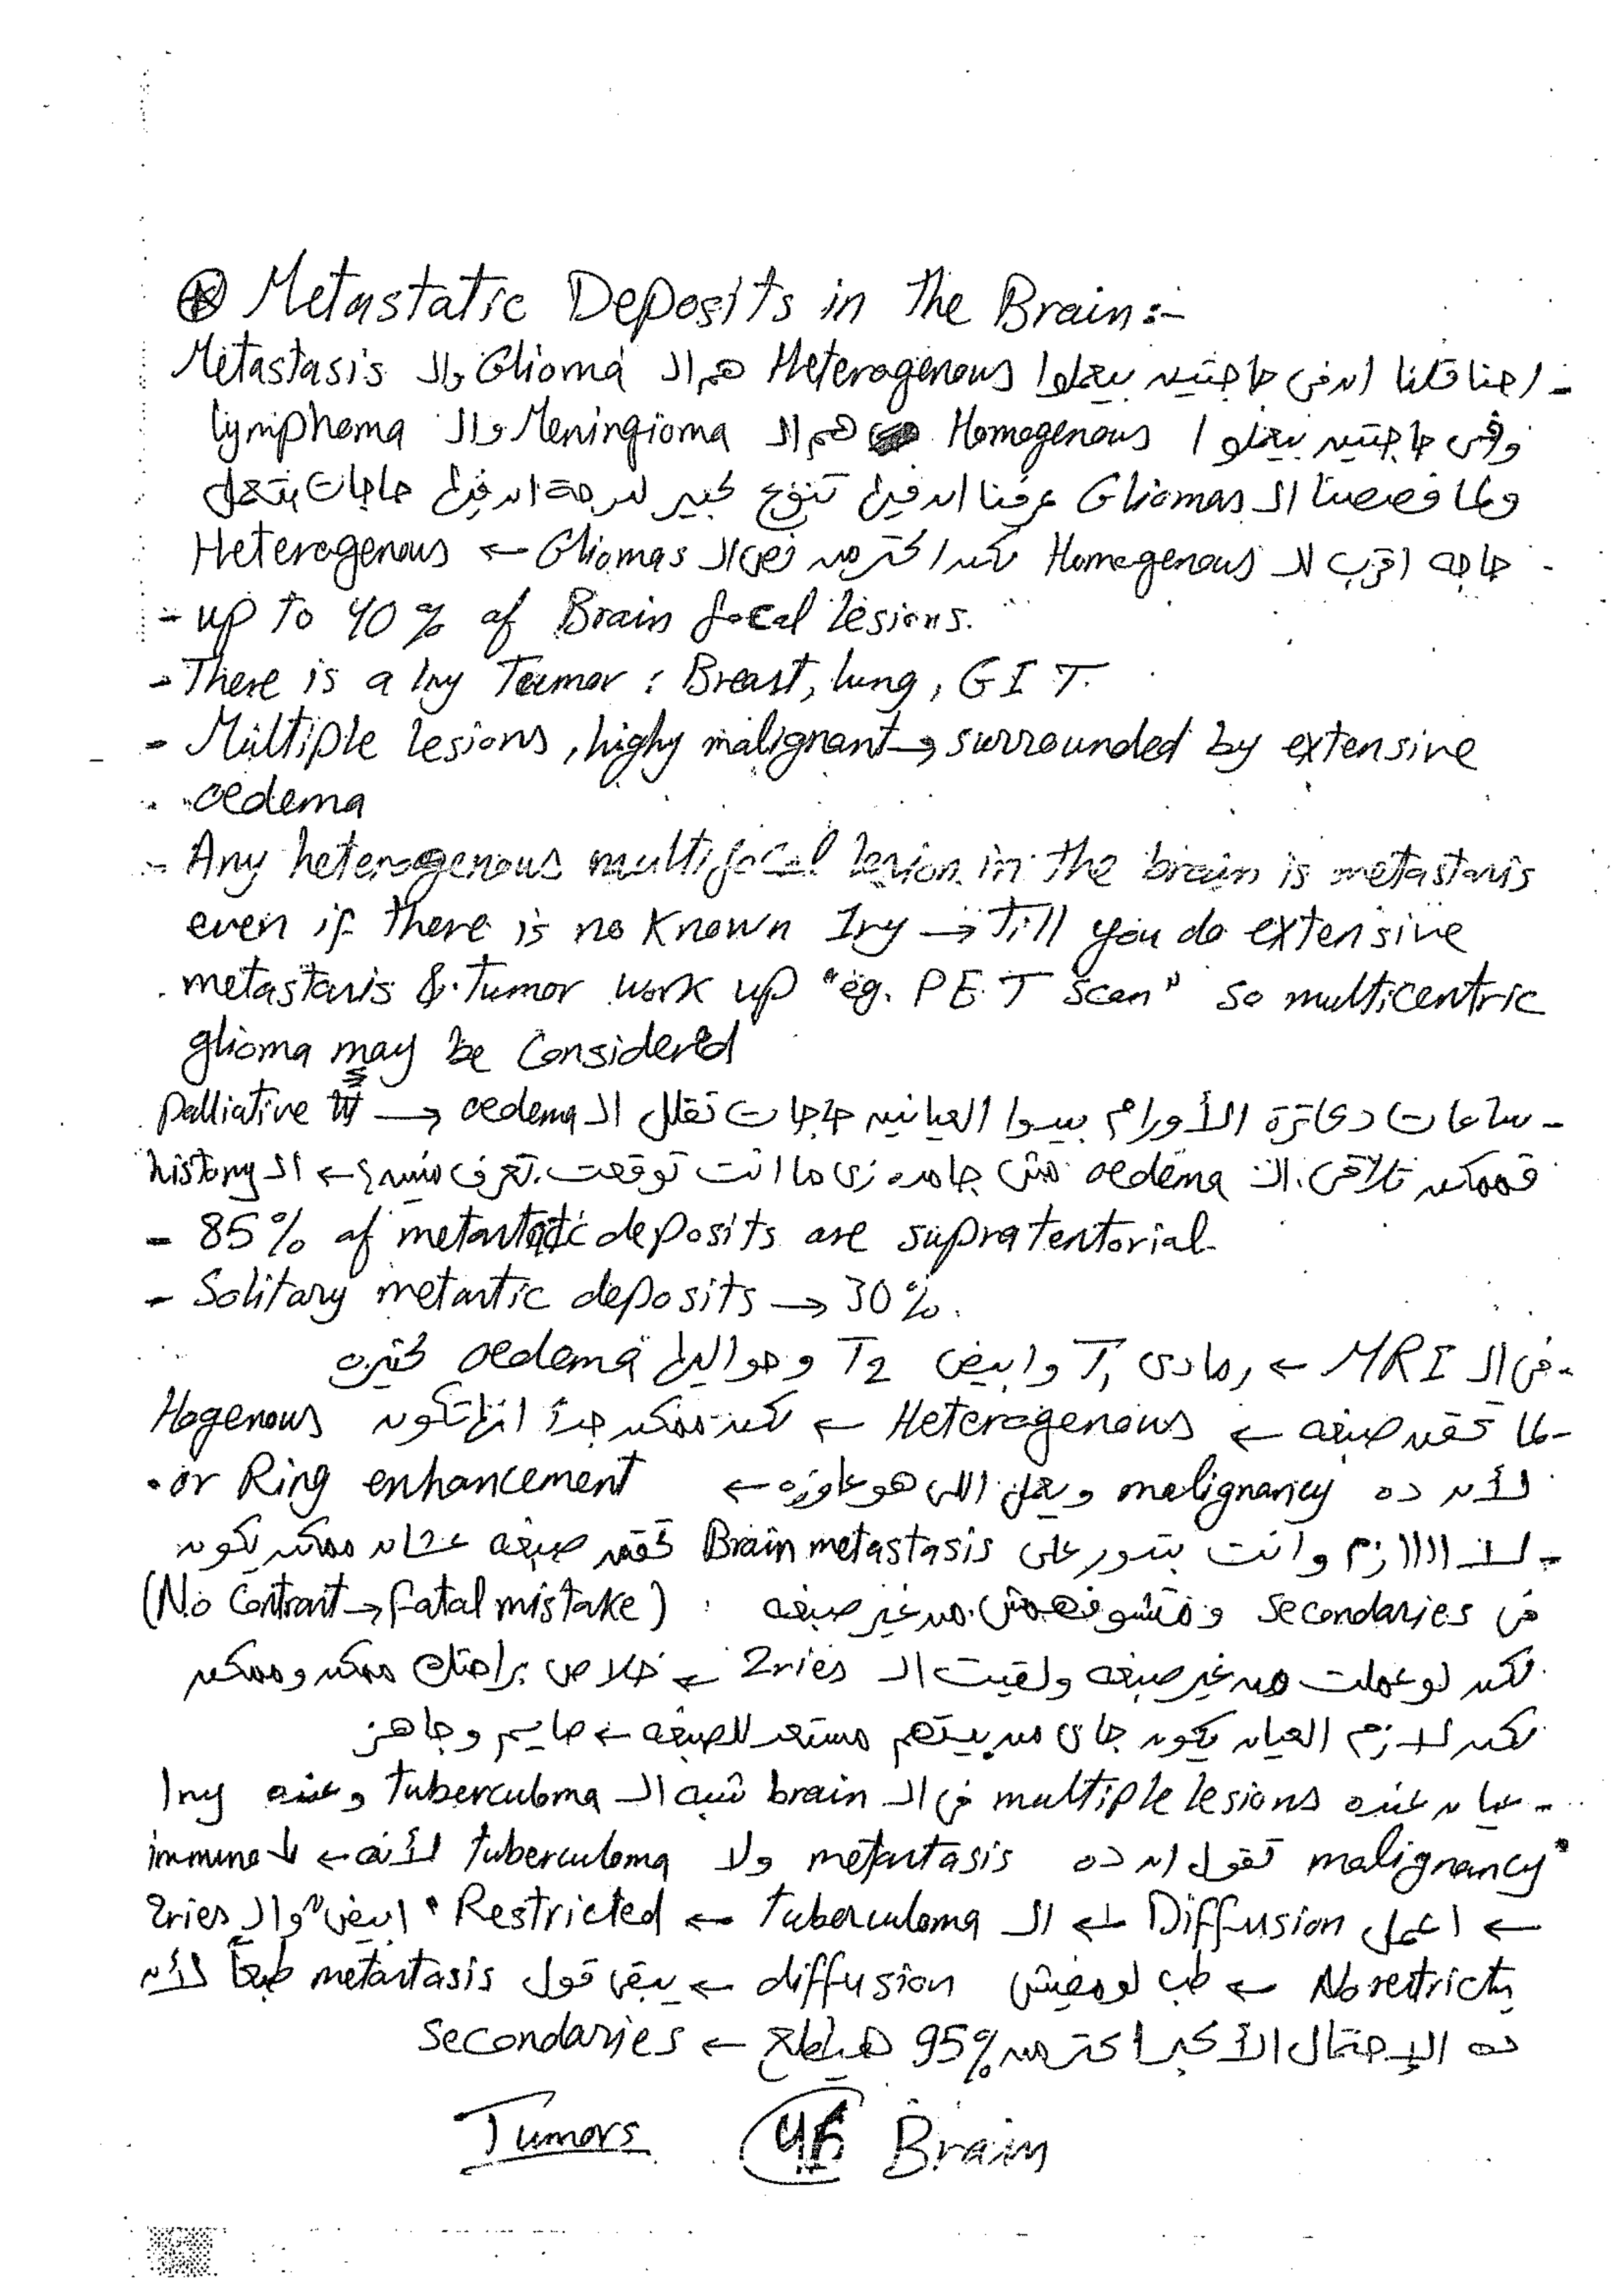 ⊛ Metastatic Deposits in the Brain:-
- احنا قلنا ان فى حاجتين بيعملوا Heterogenous هم الـ Glioma والـ Metastasis
وفى حاجتين بيعملوا Homogenous هم الـ Meningioma والـ lymphoma
ولما فصصنا الـ Gliomas عرفنا ان فيها تنوع كبير لدرجة ان فيها حاجات بتعمل
حاجه اقرب لـ Homogenous لكن اكتر من نص الـ Gliomas ← Heterogenous
- up to 40% of Brain focal lesions.
- There is a 1ry Tumor : Breast, lung, GIT.
- Multiple lesions, highy malignant → surrounded by extensive
oedema
- Any heterogenous multifocal lesion in the brain is metastasis
even if there is no Known 1ry → Till you do extensive
metastasis & Tumor work up "eg. PET Scan" so multicentric
glioma may be Considered
- ساعات دكاترة الأورام بيدوا العيانين حاجات تقلل الـ oedema ← Palliative ttt
فممكن تلاقى الـ oedema مش جامده زى ما انت توقعت. تعرف منين؟ ← الـ history
- 85% of metastatic deposits are supratentorial
- Solitary metastic deposits → 30%.
- فى الـ MRI ← رمادى T1 وابيض T2 وحواليها oedema كتيره
- لما تحقن صبغه ← Heterogenous ← لكن ممكن جداً انها تكون Hogenous
or Ring enhancement لأن ده malignancy ويعمل اللى هو عاوزه ←
- لااااازم وانت بتدور على Brain metastasis تحقن صبغه عشان ممكن يكون
فى secondaries ومتشوفهمش من غير صبغه (No Contrast → fatal mistake)
لكن لو عملت من غير صبغه ولقيت الـ 2ries ← خلاص براحتك ممكن وممكن
لكن لازم العيان يكون جاى من بيتهم مستعد للصبغه ← صايم وجاهز
- عيان عنده multiple lesions فى الـ brain شبه الـ tuberculoma وعنده 1ry
malignancy تقول ان ده metastasis ولا tuberculoma لأنه ← ↓ immune
← اعمل Diffusion ← الـ tuberculoma ← Restricted "ابيض" والـ 2ries
No restricti ← طب لو مفيش diffusion ← يبقى قول metastasis طبعاً لأن
ده الإحتمال الأكبر اكتر من 95% هيطلع ← secondaries
Tumors 46 Brain